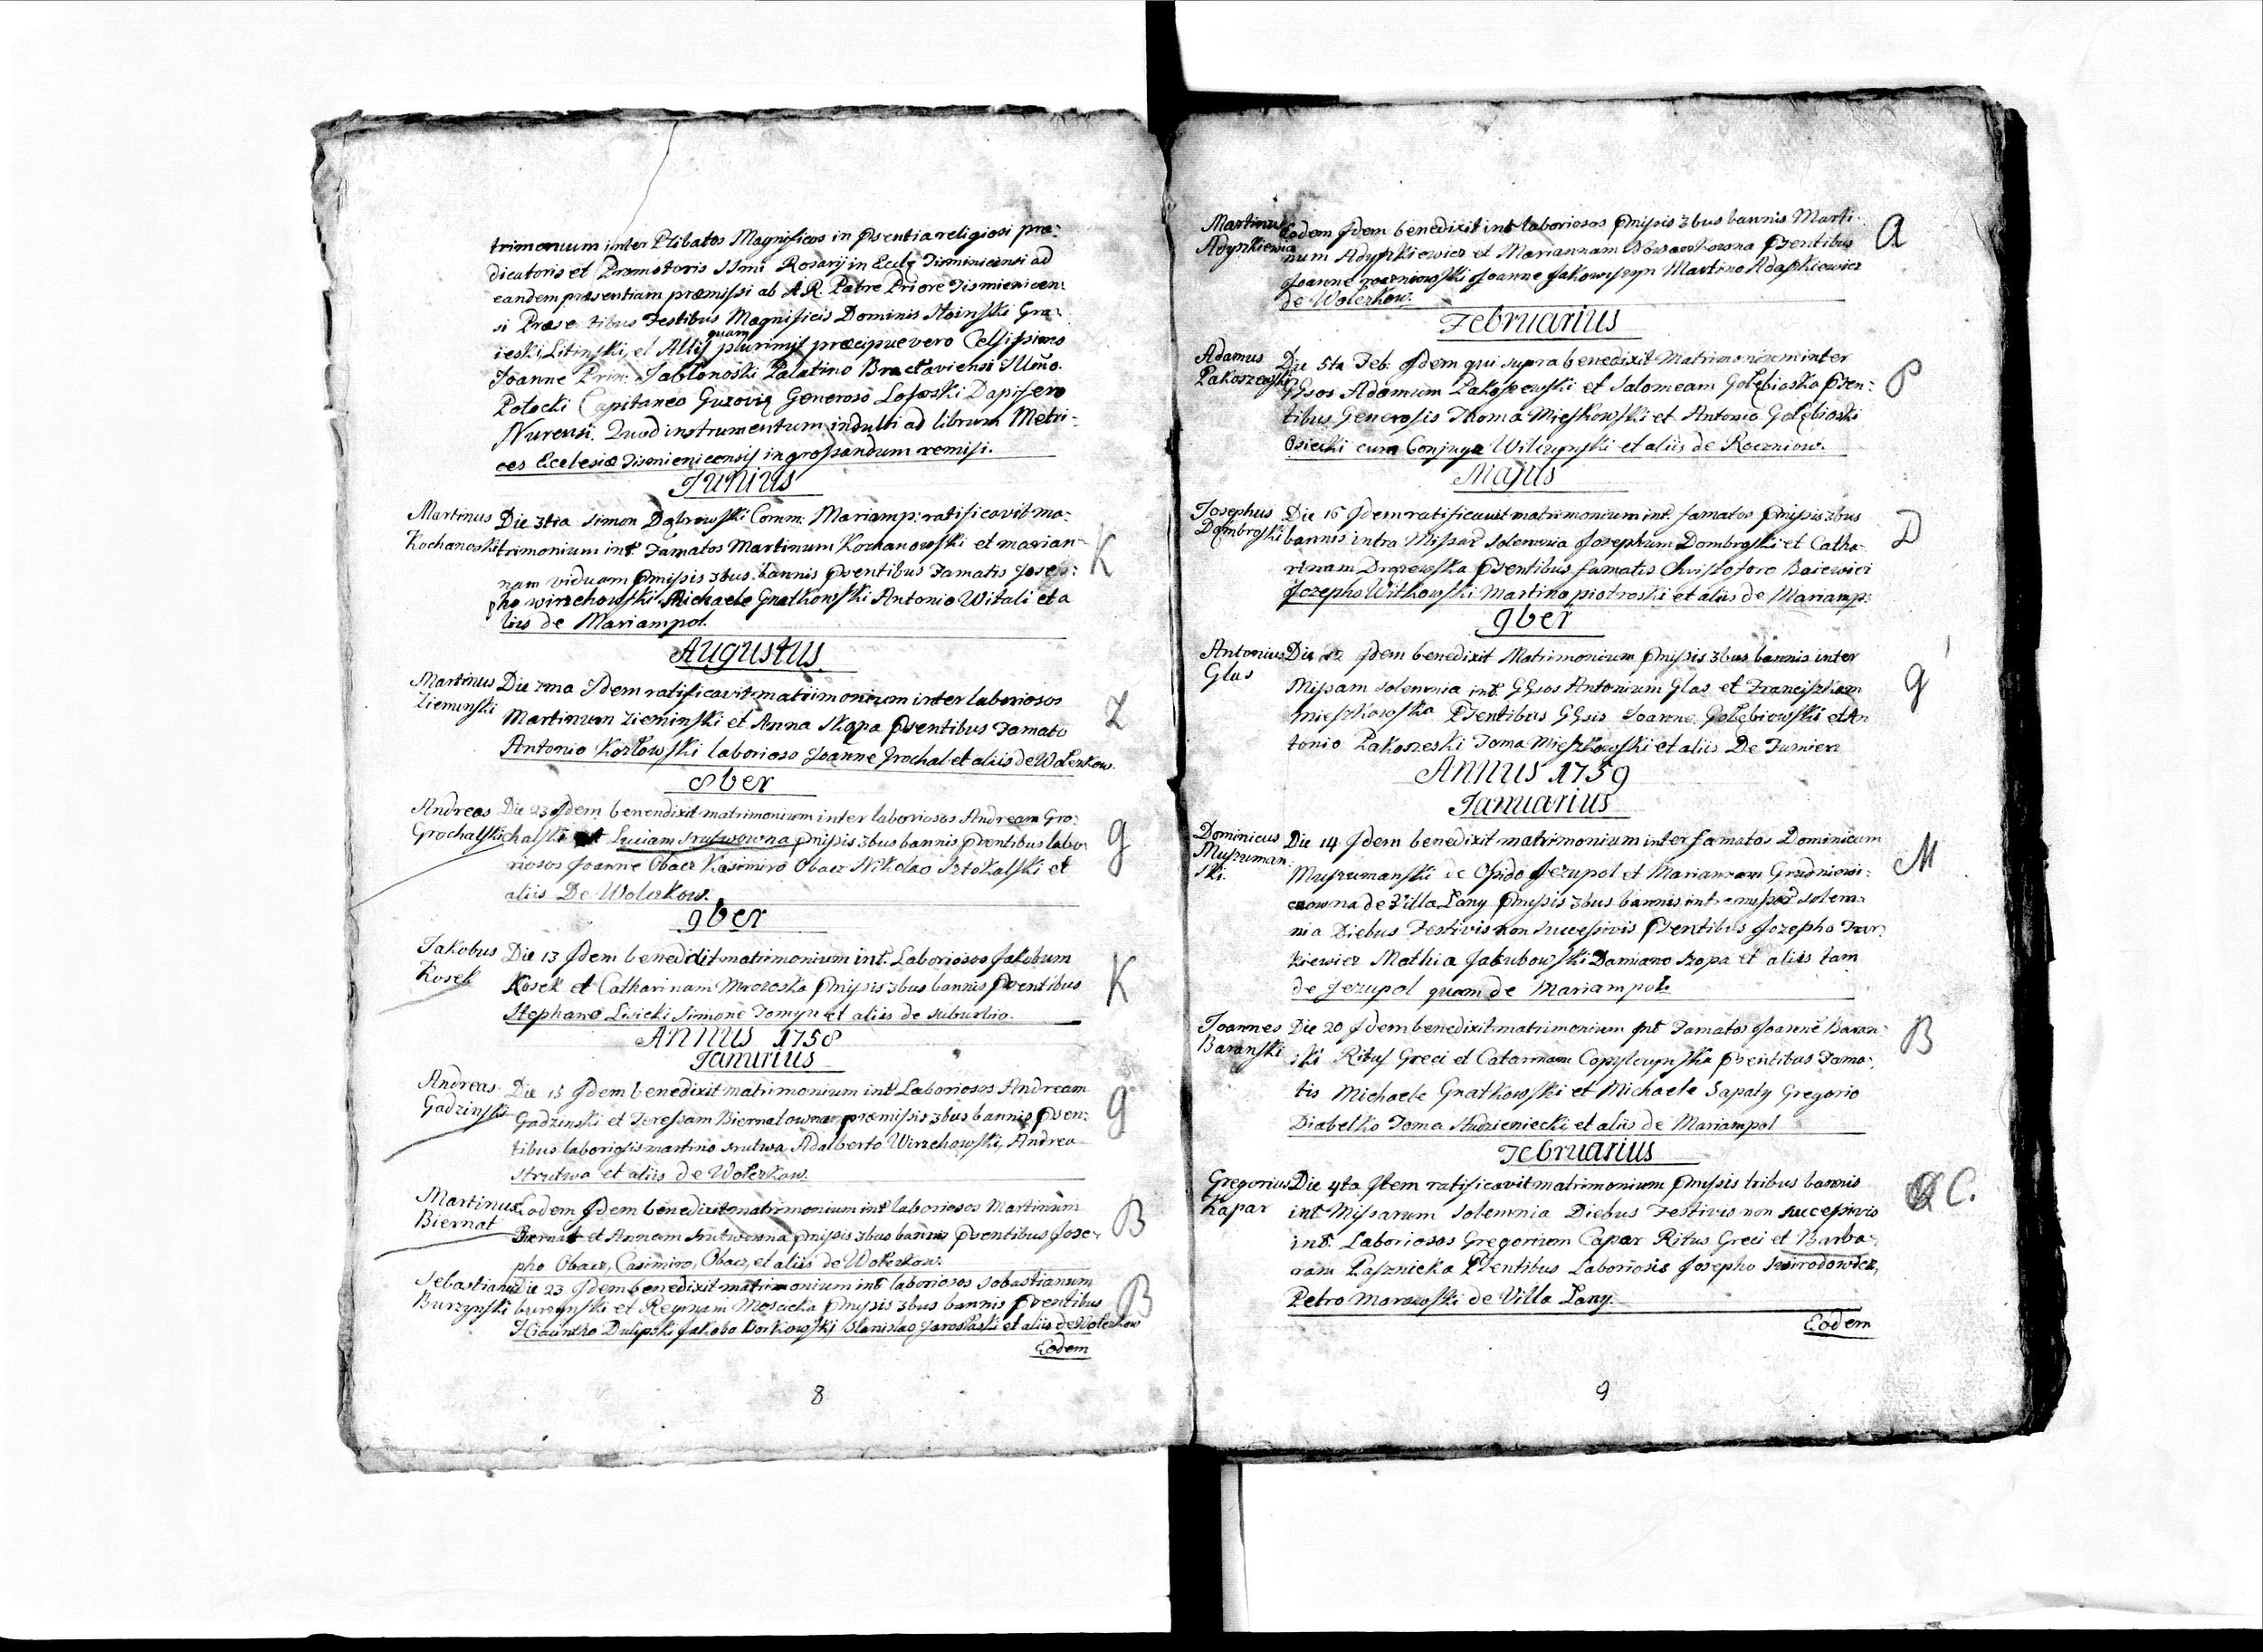 trimonium inter Plibatos Magnificos in Psentia religiosi præ:
dicatoris et Promotoris SSmi Rosarij in Eccle Tismienicensi ad
eandem præsentiam præmissi ab A.R. Patre Priore Tismienicen:
si Præsentibus Testibus Magnificis Dominis Stoinski Gra:
ieski, Litinski, et Allijs quam plurimis præcipue vero Celsissimo
Joanne Prin: Jablonoski Palatino Bractaviensi Illmo.
Potocki Capitaneo Guzoviæ Generoso Lososki Dapifero
Nurensi. Quod instrumentum indulti ad librum Metri:
ces Ecclesiæ Tismienicensis ingrossandum remisi.
Junius
Martinus Kochanoski
Die 3tia Simon Dąbrowski Comm: Mariamp: ratificavit ma:
trimonium int Famatos Martinum Kochanowski et marian:
nam viduam Pmissis 3bus bannis Psentibus Famatis Jose:
pho wirzchowski Michaele Gnatkowski Antonio Witali et a
liis de Mariampol.
K
Augustus
Martinus Zieminski
Die 7ma Idem ratificavit matrimonium inter laboriosos
Martinum Zieminski et Anna Skąpa Psentibus Famato
Antonio Kozłowski laborioso Joanne Grochal et aliis de Wolczkow.
Z
8ber
Andreas Grochalski
Die 23 Idem benendixit matrimonium inter laboriosos Andream Gro:
chalski et Luciam Srutwowna Pmissis 3bus bannis Psentibus labo:
riosos Joanne Obacz Kasimiro Obacz Nikolao Sztokalski et
aliis De Wolczkow.
g
9ber
Jakobus Kosek
Die 13 Idem beneddit matrimonium int. Laboriosos Jakobum
Kosek et Catharinam Mrozoska Pmissis 3bus bannis Psentibus
Stephano Lisicki Simone Tomyn et aliis de suburbio.
K
Annus 1758
Janurius
Andreas Gadzinski
Die 15 Idem benedixit matrimonium int Laboriosos Andream
Gadzinski et Teressam Biernatowna præmissis 3bus bannis Psen:
tibus laboriosis martino srutwa, Adalberto Wirzchowski, Andrea
Strutwa et aliis de Wolczkow.
g
Martinus Biernat
Eodem Idem benedixit matrimonium int laboriosos Martinum
Biernat et Annam srutwowna Pmissis 3bus bannis Psentibus Jose:
pho Obacz, Casimiro, Obacz, et aliis de Wolczkow.
B
Sebastianus Burzynski
Die 23 Idem benedixit matrimonium int laboriosos sobastianum
burzynski et Reginam Moscicka Pmissis 3bus bannis Psentibus
Hiacintho Dulipski Jakobo Borkowski Stanislao Jaroslaski et aliis de Wolczkow
B
Eodem
8
Martinus Adyszkiewicz
Eodem Idem benedixit int laboriosos Pmissis 3bus bannis Marti:
num Adyszkiewicz et Mariannam Psentibus
Joanne Joanne Jakowiszyn Martino Adaszkiewicz
de Wolczkow.
a
Februarius
Adamus Pakoszewski
Die 5ta Feb: Idem qui supra benedixit Matrimonium inter
GGsos Adamum Pakoszewski et Salomeam Gołębioska Psen:
tibus Generosis Thoma Mieszkowski et Antonio Gołębioski
Osiecki cum Conjuge Wilczynski et aliis de Roczniow.
P
Majus
Josephus Dąmbroski
Die 16 Idem ratificavit matrimonium int. famatos Pmissis 3bus
bannis intra Missar solemnia Josephum Dombroski et Catha:
rinam Psentibus famatis Christoforo Baiewicz
Jozepho Witkowski Martino piotroski et aliis de Mariamp:
D
9ber
Antonius Glas
Die 12 Idem benedixit Matrimonium Pmissis 3bus bannis inter
Missam solemnia int. GGsos Antonium Glas et Franciszkam
mieszkowska Psentibus GGsis Joanne Gołębiowski et An
tonio Pakoszeski Toma Mieszkowski et aliis De
g
Annus 1759
Januarius
Dominicus Muszumanski.
Die 14 Idem benedixit matrimonium inter famatos Dominicum
Muszumanski de Opido Jezupol et Mariannam Grudniewi:
czowna de Villa Lany Pmissis 3bus bannis intra missar solem:
nia Diebus Festivis non successivis Psentibus Jozepho Tur:
kiewicz Mathia Jakubowski Damiano Szopa et aliis tam
de Jezupol quam de Mariampol.
M
Joannes Baranski
Die 20 Idem benedixit matrimonium int Famatos Joanne Baran:
ski Ritus Greci et Catarinam Psentibus Fama:
tis Michaele Gnatkowski et Michaele Sapaty Gregorio
Diabełko Toma Studzieniecki et aliis de Mariampol
B
Februarius
Gregorius Kapar
Die 4ta Item ratificavit matrimonium Pmissis tribus bannis
int Missarum solemnia Diebus Festivis non successivis
int. Laboriosos Gregorium Capar Ritus Greci et Barba:
ram Łasznicka Psentibus Laboriosis Josepho Swirodowicz,
Petro Morawski de Villa Lany.
C.
Eodem
9